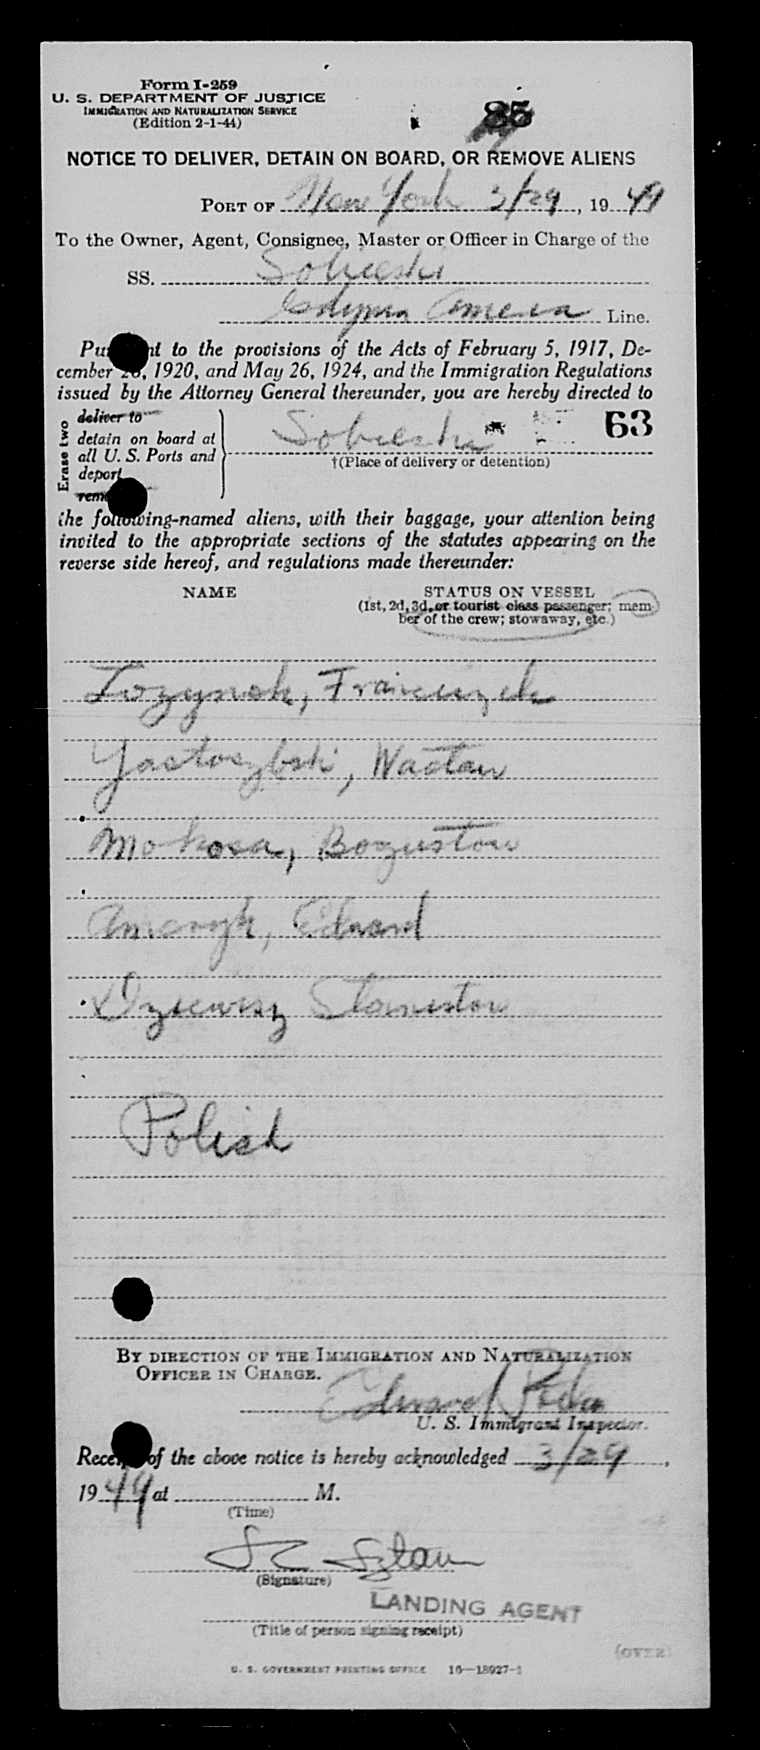 Form I-259
U. S. DEPARTMENT OF JUSTICE
IMMIGRATION AND NATURALIZATION SERVICE
(Edition 2-1-44)
85
NOTICE TO DELIVER, DETAIN ON BOARD, OR REMOVE ALIENS
PORT OF New York 3/29, 1949
To the Owner, Agent, Consignee, Master or Officer in Charge of the
SS. Sobieski
Gdynia America Line.
Pursuant to the provisions of the Acts of February 5, 1917, De-
cember 26, 1920, and May 26, 1924, and the Immigration Regulations
issued by the Attorney General thereunder, you are hereby directed to
Erase two
deliver to
detain on board at
all U. S. Ports and
deport
Sobieski 63
†(Place of delivery or detention)
the following-named aliens, with their baggage, your attention being
invited to the appropriate sections of the statutes appearing on the
reverse side hereof, and regulations made thereunder:
NAME STATUS ON VESSEL
(1st, 2d, 3d, or tourist class passenger; mem-
ber of the crew; stowaway, etc.)
Franciszek
Wactaw
Mokosa, Bogustow
Edward
Stanistow
Polish
BY DIRECTION OF THE IMMIGRATION AND NATURALIZATION
OFFICER IN CHARGE.
Edward
U. S. Immigrant Inspector.
Receipt of the above notice is hereby acknowledged 3/29,
1949 at M.
(Time)
(Signature)
LANDING AGENT
(Title of person signing receipt)
(OVER)
U. S. GOVERNMENT PRINTING OFFICE 16—18927-1